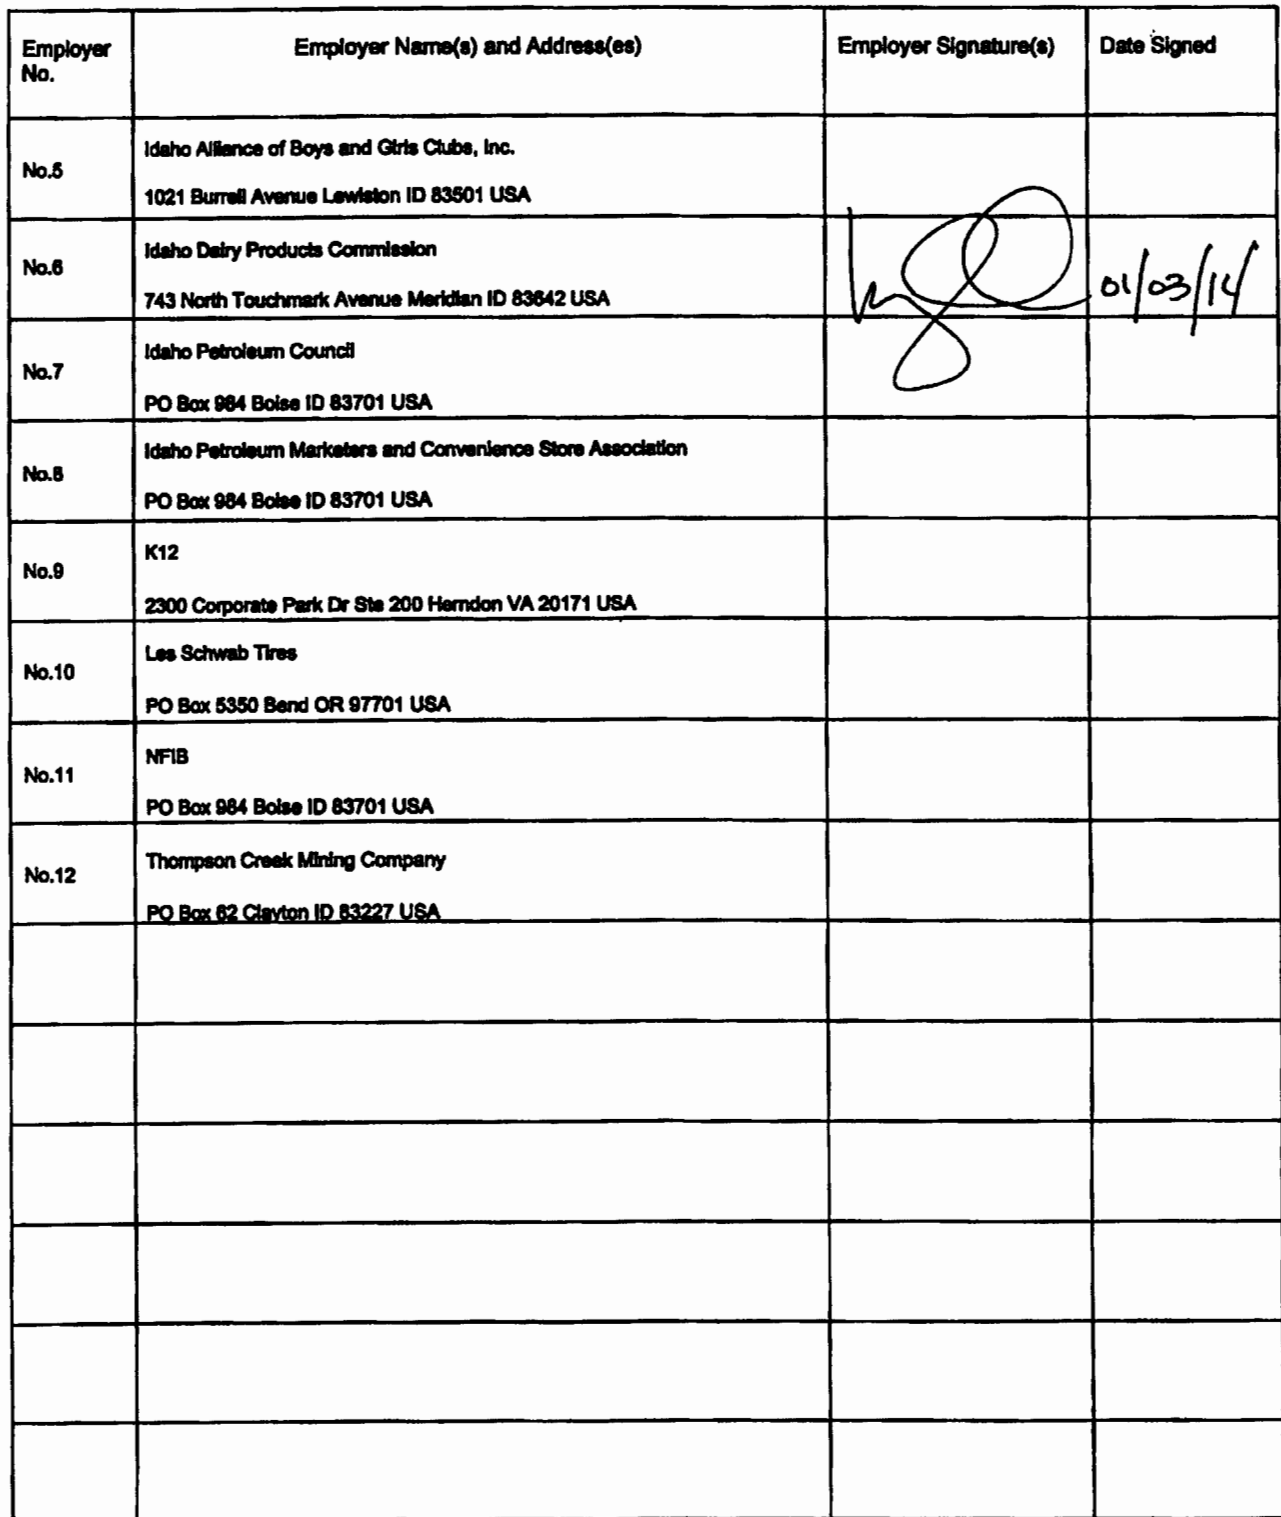 Employer No.
Employer Name(s) and Address(es)
Employer Signature(s)
Date Signed
No.5
Idaho Alliance of Boys and Girls Clubs, Inc.
1021 Burrell Avenue Lewiston ID 83501 USA
No.6
Idaho Dairy Products Commission
743 North Touchmark Avenue Meridian ID 83642 USA
01/03/14
No.7
Idaho Petroleum Council
PO Box 984 Boise ID 83701 USA
No.8
Idaho Petroleum Marketers and Convenience Store Association
PO Box 984 Boise ID 83701 USA
No.9
K12
2300 Corporate Park Dr Ste 200 Herndon VA 20171 USA
No.10
Les Schwab Tires
PO Box 5350 Bend OR 97701 USA
No.11
NFIB
PO Box 984 Boise ID 83701 USA
No.12
Thompson Creek Mining Company
PO Box 62 Clayton ID 83227 USA